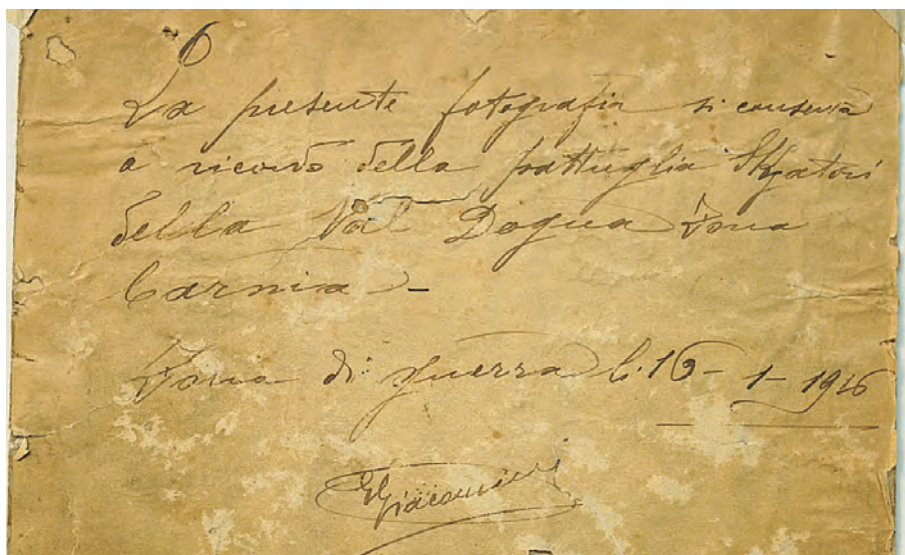 La presente fotografia si conserva
a ricordo della pattuglia Skyatori
della Val Dogna Zona
Carnia -
Zona di guerra li 16 - 1 - 1916
Giacomini